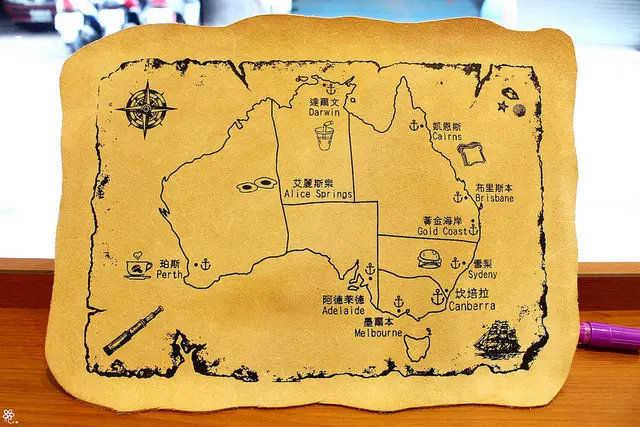 達爾文
Darwin
凱恩斯
Cairns
艾麗斯泉
Alice Springs
布里斯本
Brisbane
黃金海岸
Gold Coast
珀斯
Perth
雪梨
Sydeny
坎培拉
Canbarra
阿德萊德
Adelaide
墨爾本
Melbourne